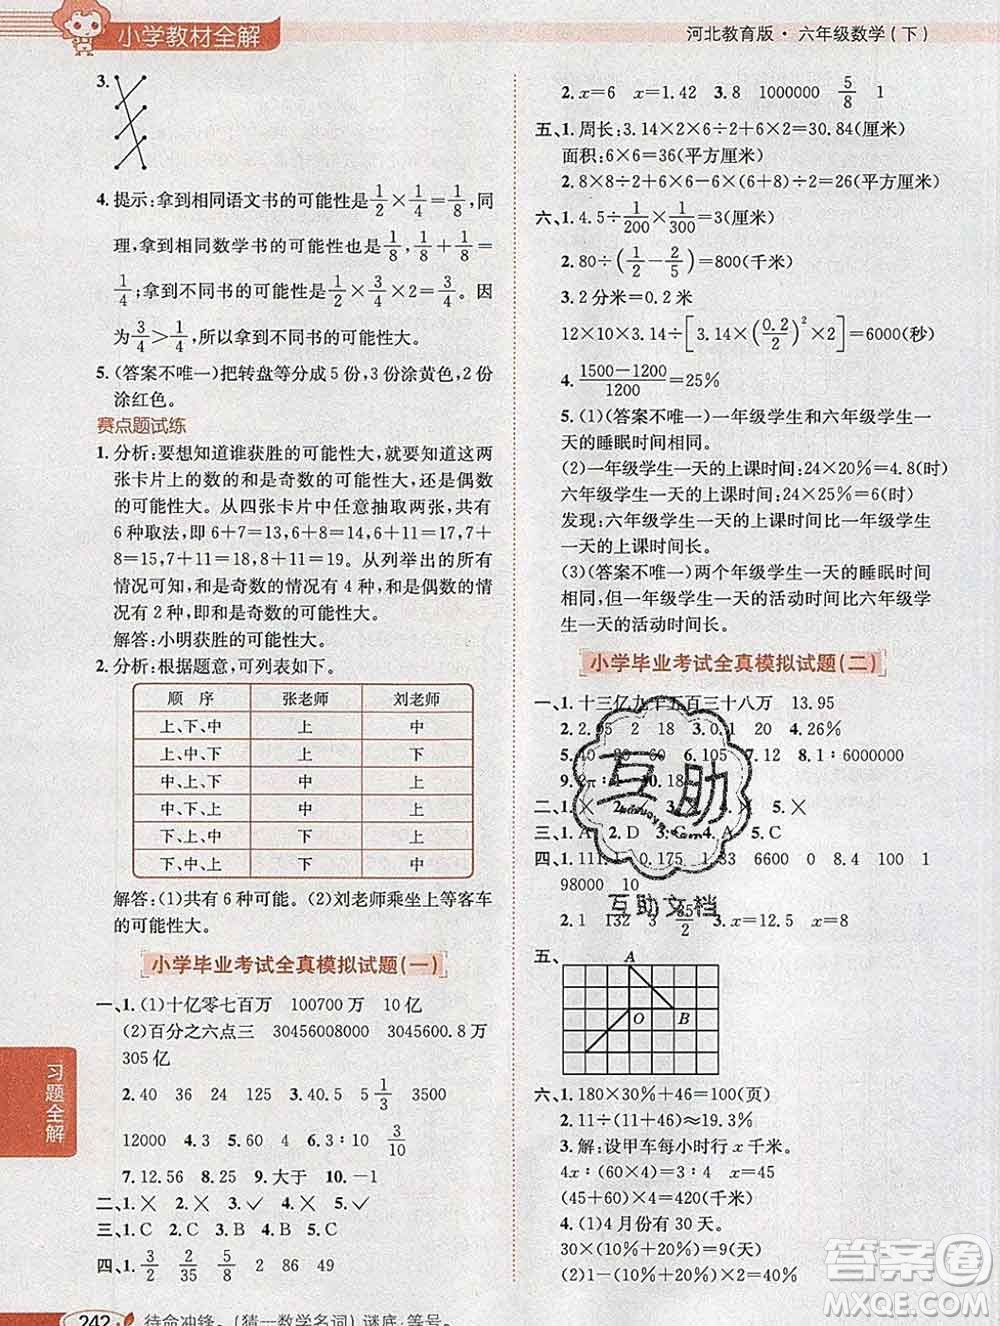 小学教材全解
河北教育版·六年级数学(下)
3.
4.提示:拿到相同语文书的可能性是1/2×1/4=1/8,同
理,拿到相同数学书的可能性也是1/8,1/8+1/8=
1/4,拿到不同书的可能性是1/2×3/4×2=3/4。因
为3/4>1/4,所以拿到不同书的可能性大。
5.(答案不唯一)把转盘等分成5份,3份涂黄色,2份
涂红色。
赛点题试练
1.分析:要想知道谁获胜的可能性大,就要知道这两
张卡片上的数的和是奇数的可能性大,还是偶数
的可能性大。从四张卡片中任意抽取两张,共有
6种取法,即6+7=13,6+8=14,6+11=17,7+
8=15,7+11=18,8+11=19。从列举出的所有
情况可知,和是奇数的情况有4种,和是偶数的情
况有2种,即和是奇数的可能性大。
解答:小明获胜的可能性大。
2.分析:根据题意,可列表如下。
顺 序 张老师 刘老师
上、下、中 上 中
上、中、下 上 下
中、上、下 中 上
中、下、上 中 上
下、上、中 上 中
下、中、上 下 中
解答:(1)共有6种可能。(2)刘老师乘坐上等客车
的可能性大。
小学毕业考试全真模拟试题(一)
一、1.(1)十亿零七百万 100700万 10亿
(2)百分之六点三 30456008000 3045600.8万
305亿
2.40 36 24 60 3.45 5 1/3 3500
12000 4.25 5.60 6.3∶10 3/10
7.12.56 8.15 9.大于 10.17
二、1.× 2.× 3.× 4.√ 5.√
三、1.C 2.C 3.B 4.C 5.C
四、1.3/2 2/35 0.4 2 86 49
2.x=6 x=1.42 3.8 1000000 5/8 1
五、1.周长:3.14×2×6÷2+6×2=30.84(厘米)
面积:6×6=36(平方厘米)
2.8×8÷2+6×6-6×(6+8)÷2=26(平方厘米)
六、1.4.5÷1/200×1/300=3(厘米)
2.80÷(1/2-2/5)=800(千米)
3.2分米=0.2米
12×10×3.14÷[3.14×(0.2/2)²×2]=6000(秒)
4.1500-1200/1200=25%
5.(1)(答案不唯一)一年级学生和六年级学生一
天的睡眠时间相同。
(2)一年级学生一天的上课时间:24×20%=4.8(时)
六年级学生一天的上课时间:24×25%=6(时)
发现:六年级学生一天的上课时间比一年级学生
一天的上课时间长。
(3)(答案不唯一)两个年级学生一天的活动时间
不同,但六年级学生一天的活动时间比六年级学
生一天的活动时间长。
小学毕业考试全真模拟试题(二)
一、1.十三亿九千五百三十八万 13.95
2.2.95 2 18 3.0.1 20 4.26%
5.40 80 60 6.105 7.12 8.1∶6000000
9.2π∶ 10.18
二、1.× 2. 3.× 4.× 5.×
三、1.A 2.D 3.C 4.A 5.C
四、1.111.1 0.175 1.33 6600 8.4 100 1
98000 10
2.1 132 3 35/2 3.x=12.5 x=8
五、
A
O B
六、1.180×30%+46=100(页)
2.11÷(11+46)≈19.3%
3.解:设甲车每小时行x千米。
4x∶(60×4)=3∶4 x=45
(45+60)×4=420(千米)
4.(1)4月份有30天。
30×(50%-20%)=9(天)
(2)1-20%-50%=30%
习题全解
242
待命冲锋。(猜一数学名词)谜底:等号。
互助
互助文档
答案圈
MXQE.COM